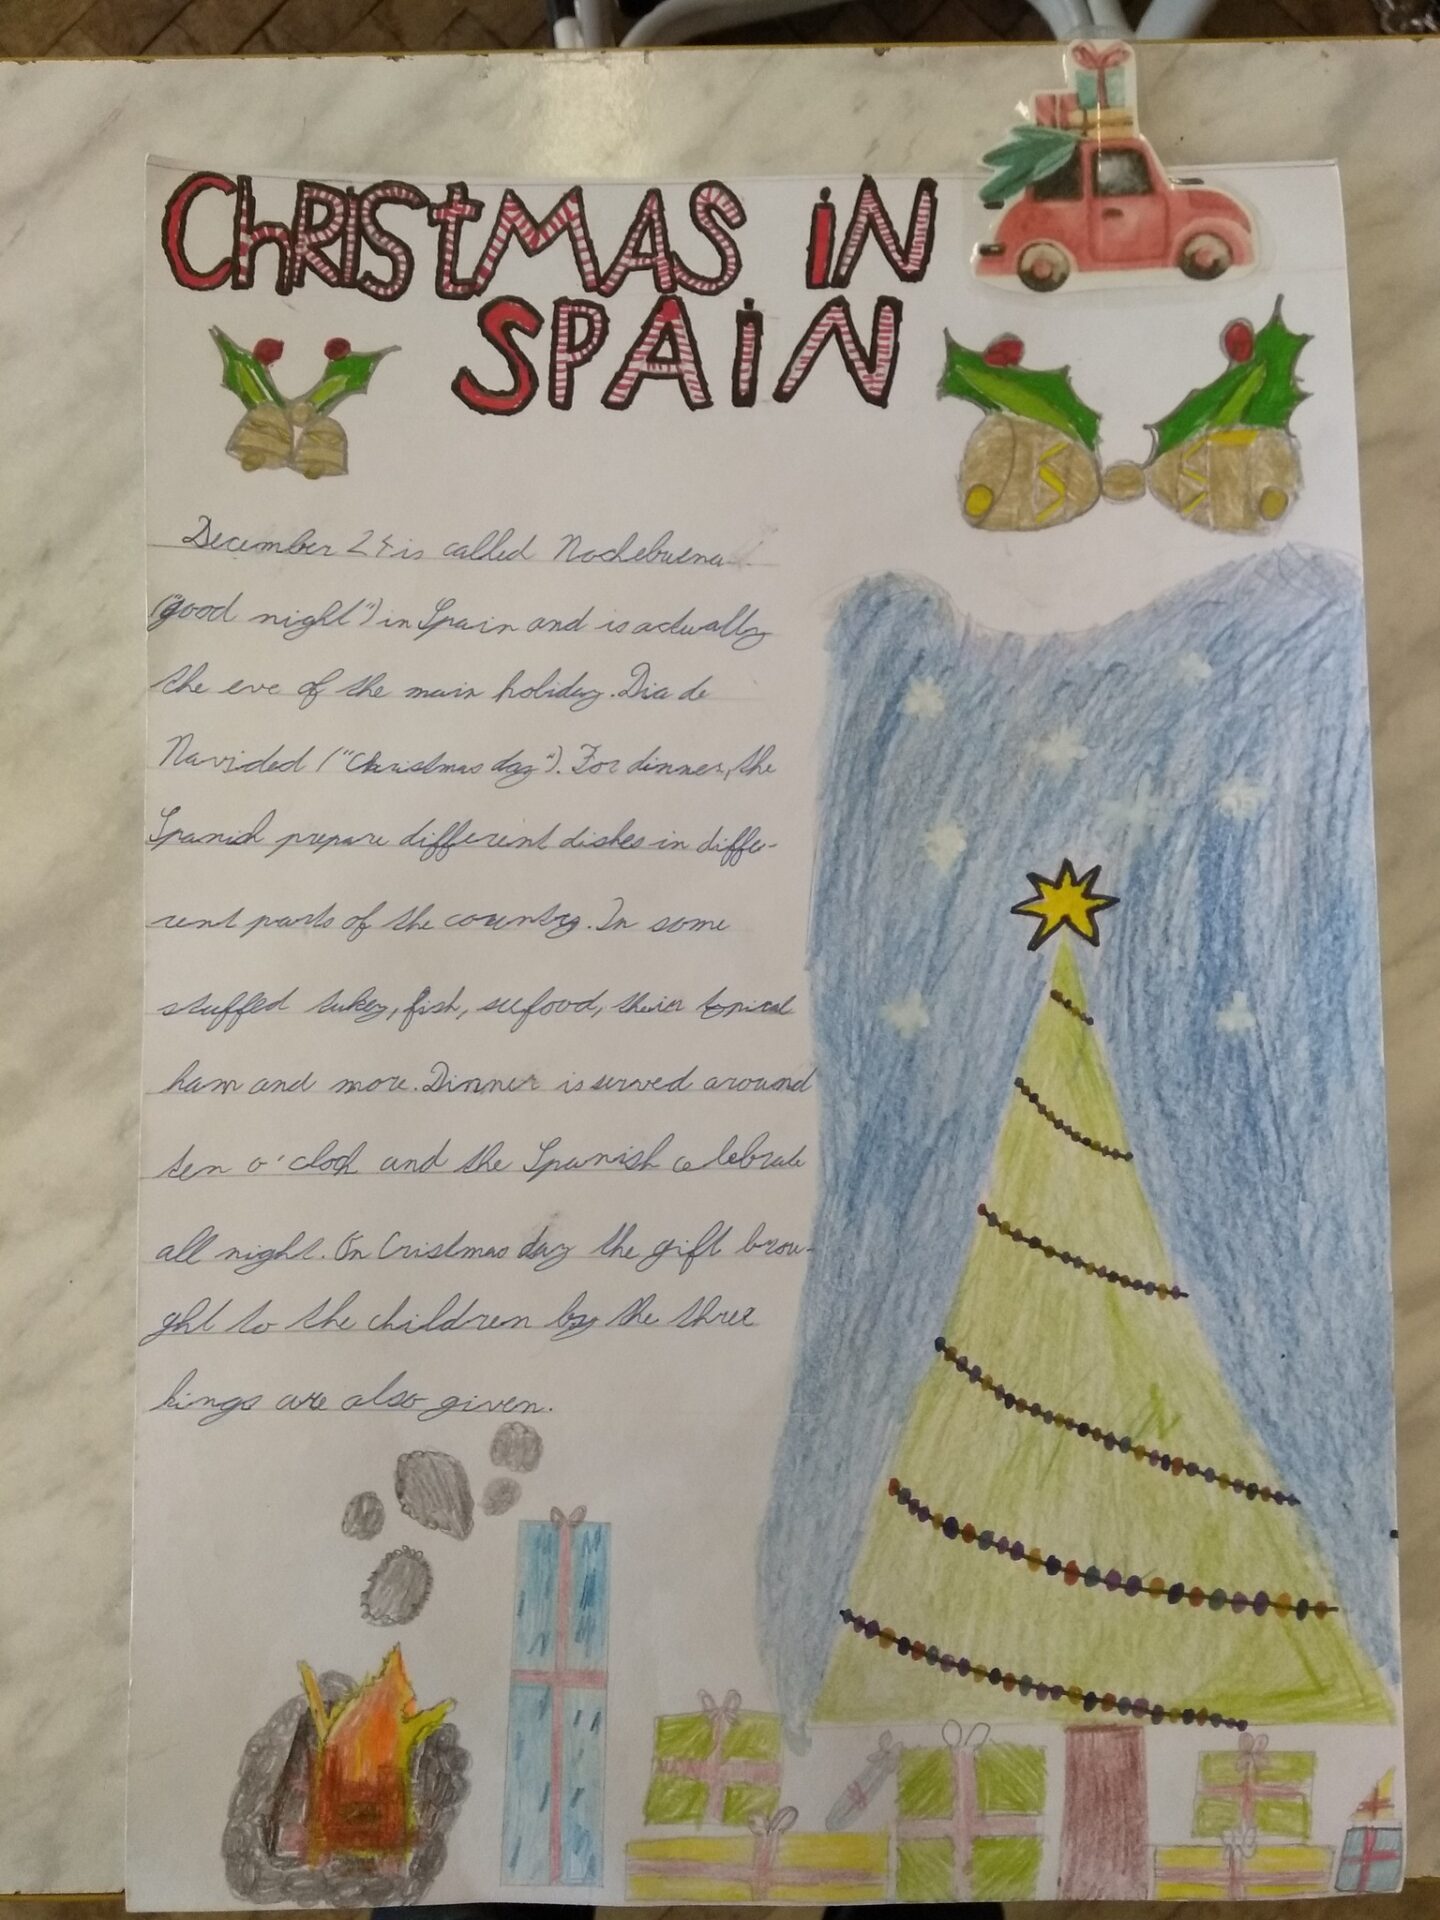 ChRISTMAS iN
SPAiN
December 24 is called Nochebuena
("good night") in Spain and is actually
the eve of the main holiday. Dia de
Navided ("Christmas day"). For dinner, the
Spanish prepare different dishes in diffe-
rent parts of the country. In some
stuffed tukey, fish, seefood, their typical
ham and more. Dinner is served around
ten o'clock and the Spanish celebrate
all night. On Cristmas day the gift brou-
ght to the children by the three
kings are also given.